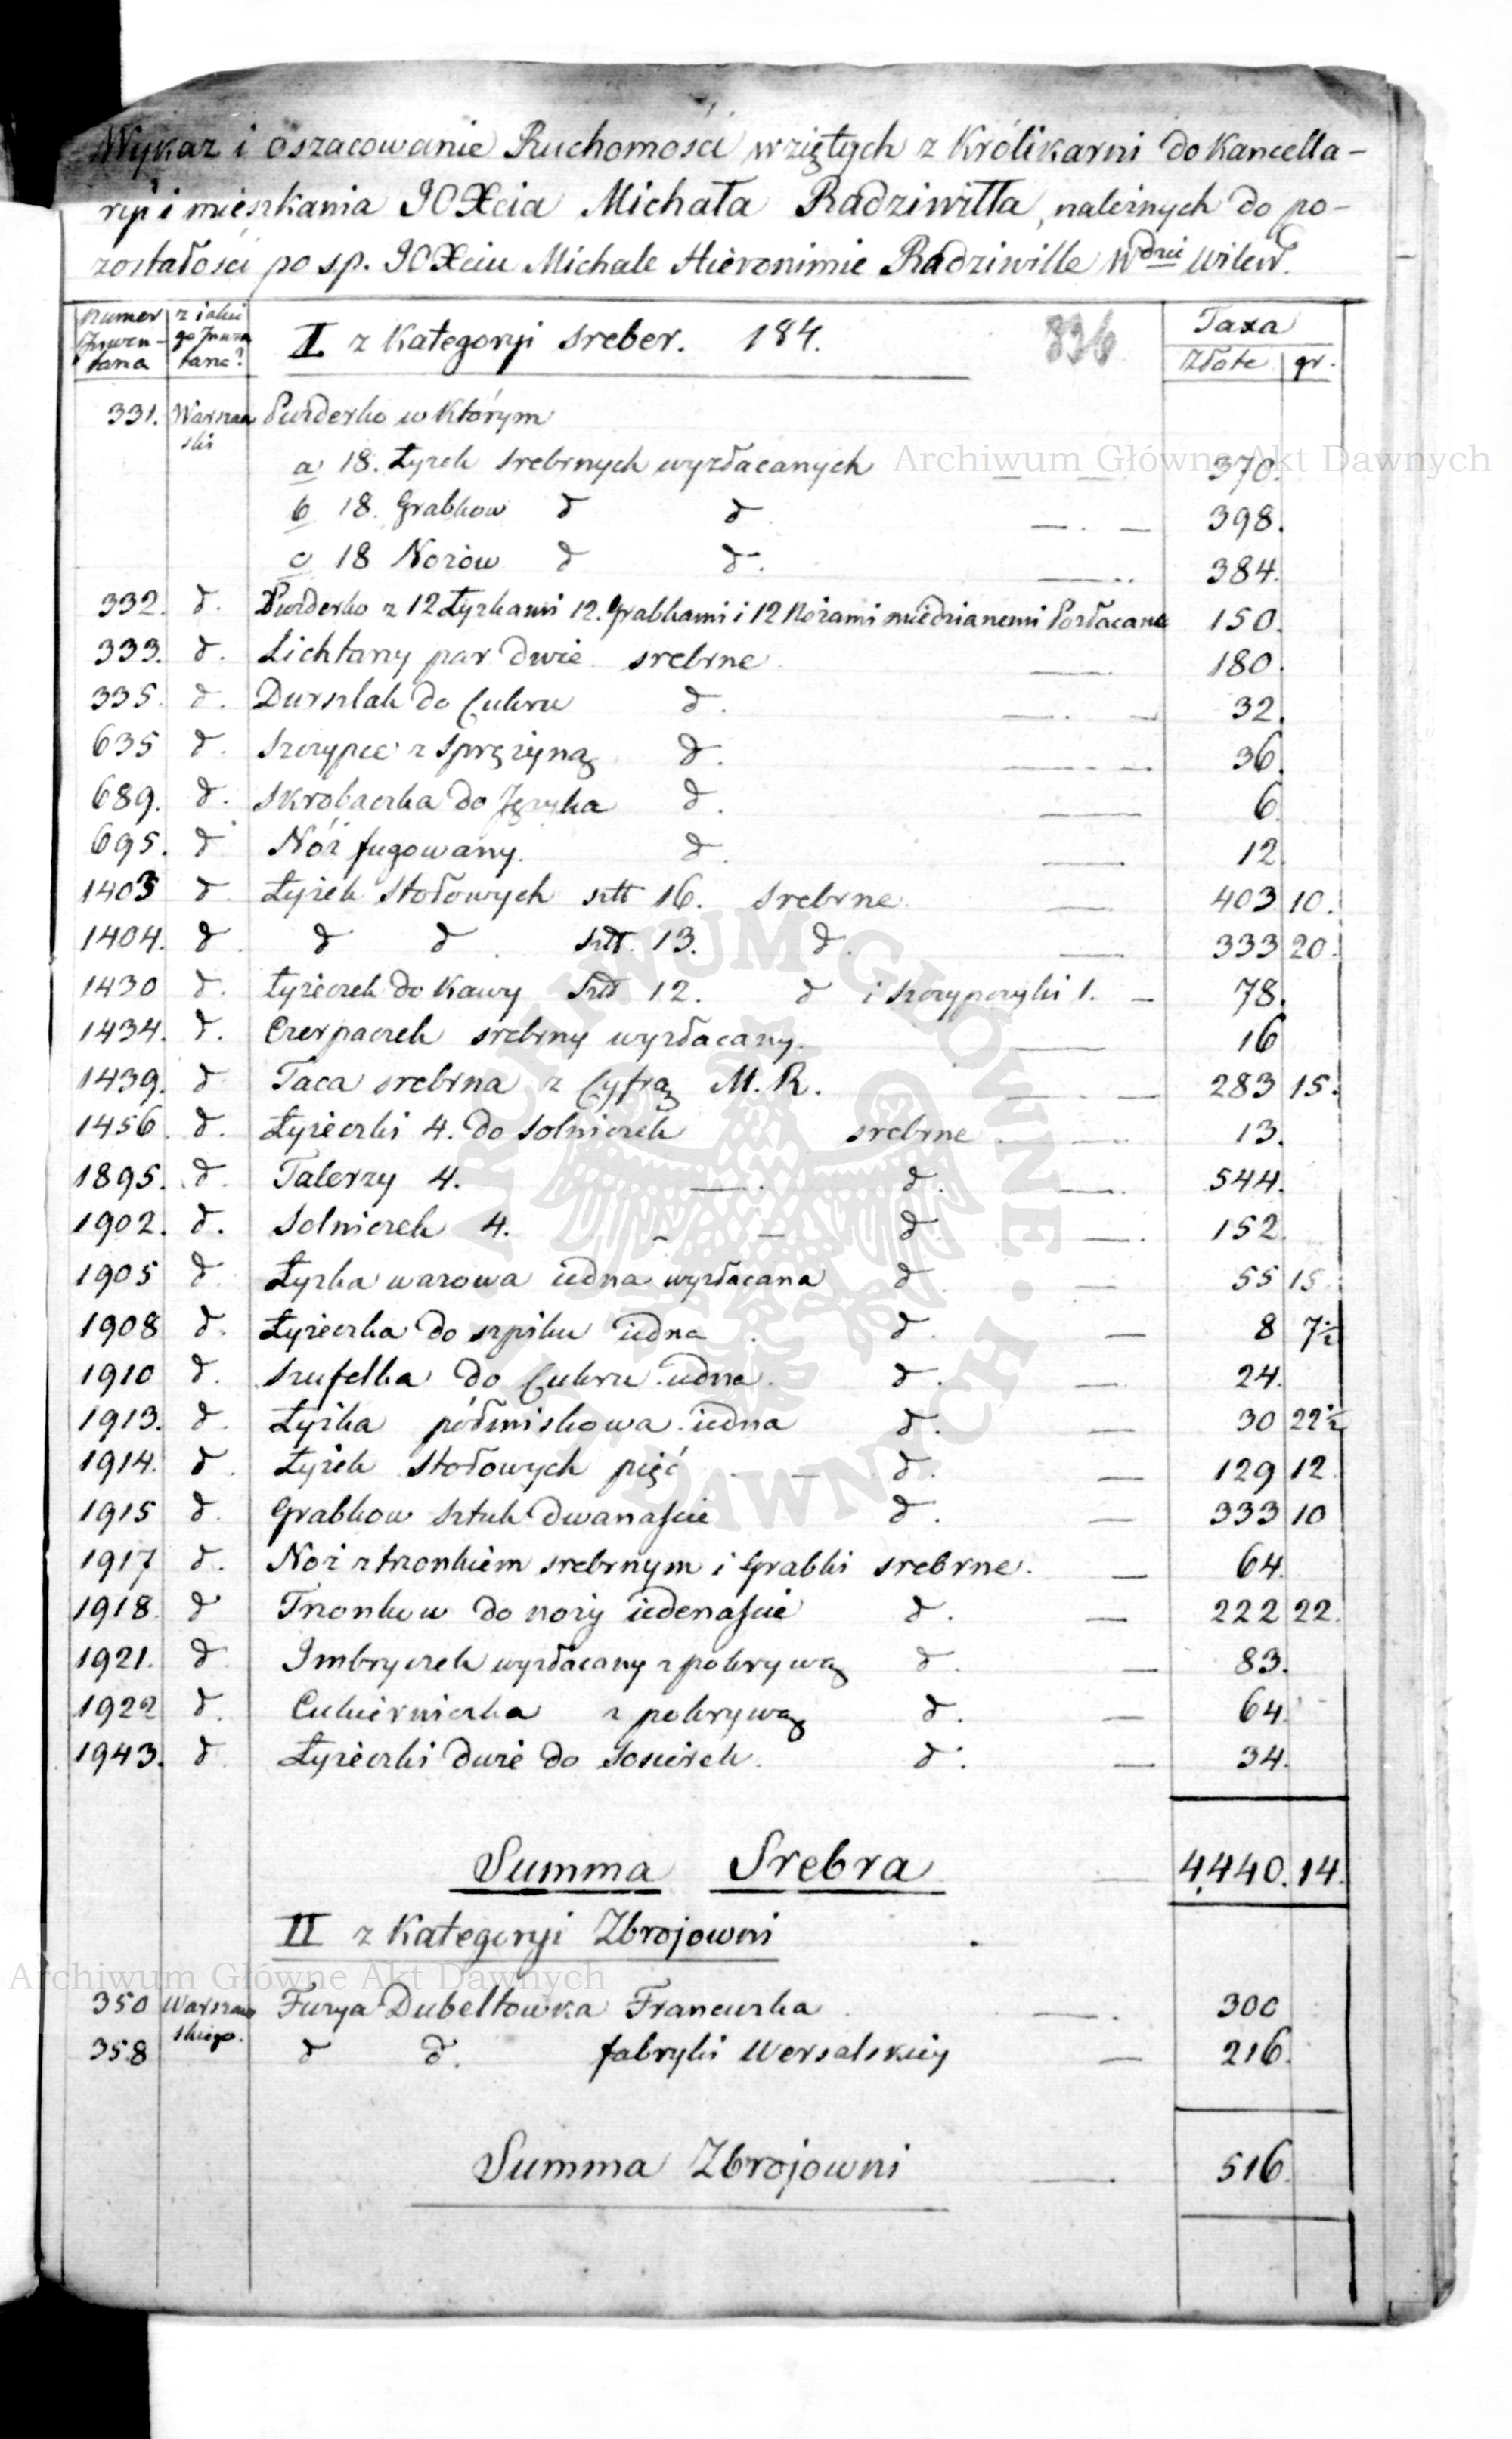 Wykaz i oszacowanie Ruchomości wziętych z Królikarni do Kancella-
ryi i mieszkania JOXcia Michała Radziwiłła, należnych do po-
zostałości po sp. JOXciu Michale Hieronimie Radziwille Wdzie Wileń.
numer Inwentarza | z iakiego Inwentarza? | I z Kategoryi Sreber. 184. 336 | Taxa
Złote | gr.
331. Warszaski Puzderko w którym
a 18. Łyżek srebrnych wyzłacanych — 370.
b 18. Grabkow d d — . — 398.
c 18 Nożow d d. — 384.
332. d. Puzderko z 12 Łyżkami 12. Grabkami i 12 Nożami miedzianemi Pozłacane 150.
333. d. Lichtarzy par dwie srebrne — 180.
335. d. Durszlak do Cukru d. — . — 32.
635 d. Szczypce z Sprężyną d. — 36.
689. d. Skrobaczka do Języka d. — 6.
695. d Nóż fugowany. d. — 12.
1403 d Łyżek Stołowych sztt 16. Srebrne — 403 10.
1404. d d d sztt. 13. d. — 333 20.
1430 d. Łyżeczek do Kawy Sztt 12. d i szczypczyki 1. — 78.
1434. d. Czerpaczek srebrny wyzłacany. — 16
1439. d Taca srebrna z Cyfrą M. R. — 283 15.
1456. d. Łyżeczki 4. do Solniczek srebrne — 13.
1895. d. Talerzy 4. — . d. — 544.
1902. d. Solniczek 4. - — d — 152
1905 d. Łyżka wazowa iedna wyzłacana d — 55 15
1908 d. Łyżeczka do szpiku iedna d. — 8 7½
1910 d. Szufelka do Cukru iedna. d. — 24.
1913. d. Łyżka półmiskowa iedna d. — 30 22½
1914. d. Łyżek Stołowych pięć - — d. — 129 12
1915 d. Grabkow Sztuk Dwanaście d. — 333 10
1917 d. Noż z trzonkiem srebrnym i Grabki srebrne. — 64.
1918. d Trzonkow do noży iedenaście d. — 222 22.
1921. d Imbryczek wyzłacany z pokrywą d. — 83.
1922 d. Cukierniczka z pokrywą d. — 64
1943. d Łyżeczki dwie do Sosierek. d. — 34.
Summa Srebra — 4,440. 14.
II z Kategoryi Zbrojowni
350 Warszawskiego. Fuzya Dubeltowka Francuzka — . 300
358 d d. fabryki Wersalskiey — 216.
Summa Zbrojowni — . 516
Archiwum Główne Akt Dawnych
ARCHIWUM GŁÓWNE · AKT DAWNYCH ·
Archiwum Główne Akt Dawnych